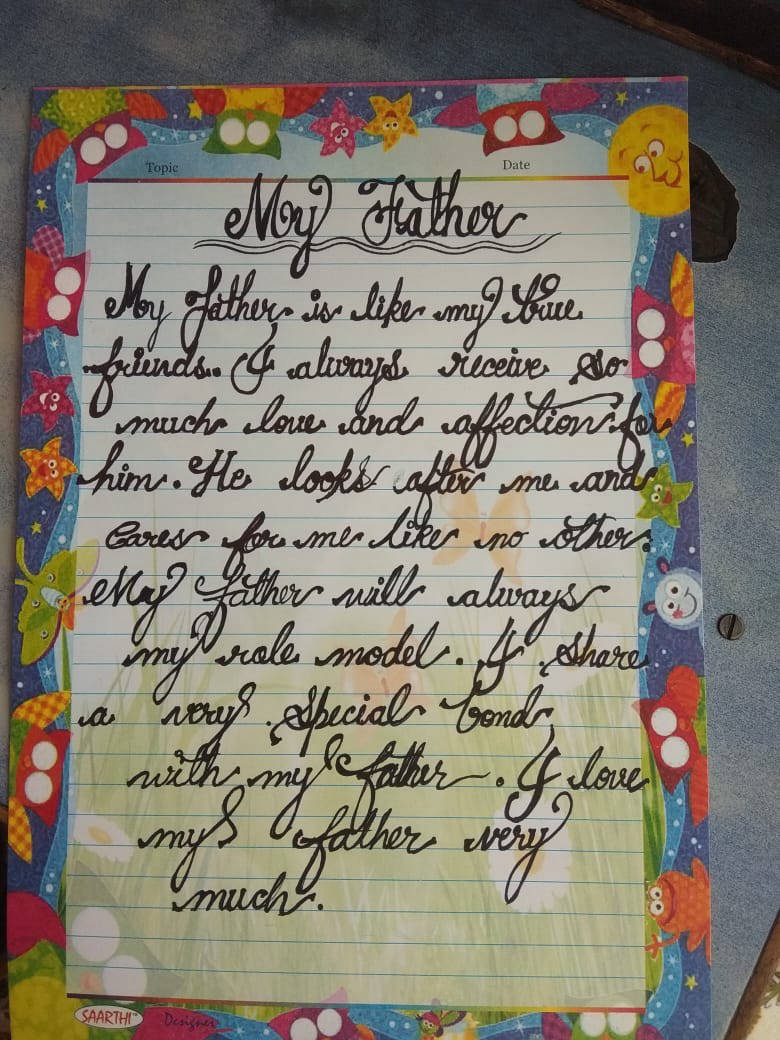 Topic
Date
My Father
My Father is like my true
friends. I always receive so
much love and affection for
him. He looks after me and
Cares for me like no other.
My father will always
my role model. I share
a very special bond
with my father. I love
my father very
much.
SAARTHI™ Designer